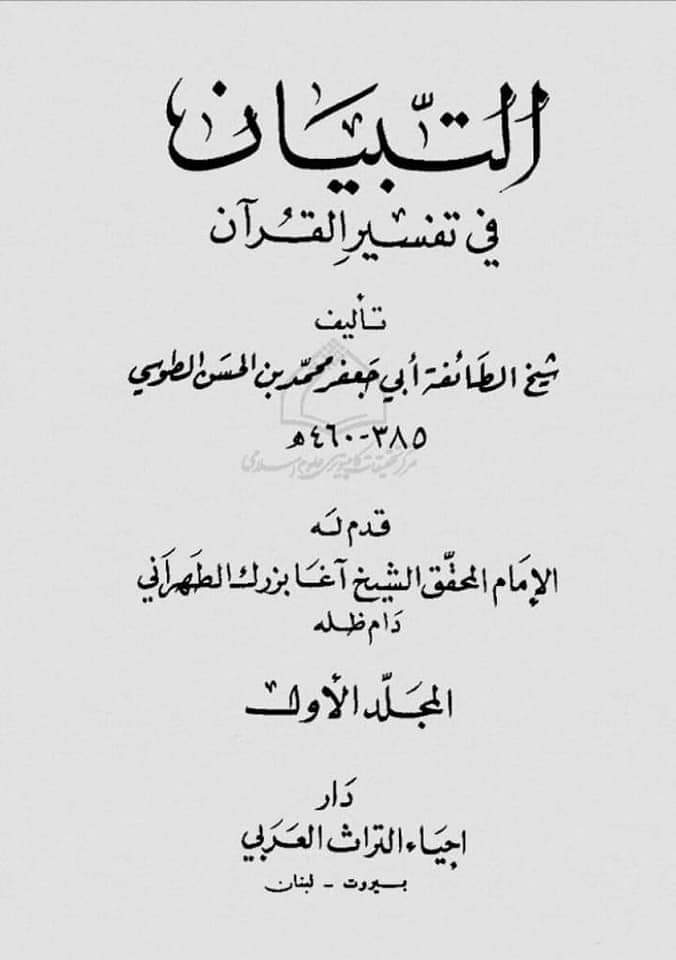 التبيان
في تفسير القرآن
تأليف
شيخ الطائفة أبي جعفر محمد بن الحسن الطوسي
٣٨٥-٤٦٠هـ
مركز تحقيقات كامپيوتري علوم اسلامي
قدم له
الإمام المحقق الشيخ آغا بزرك الطهراني
دام ظله
المجلد الأول
دار
احياء التراث العربي
بيروت - لبنان